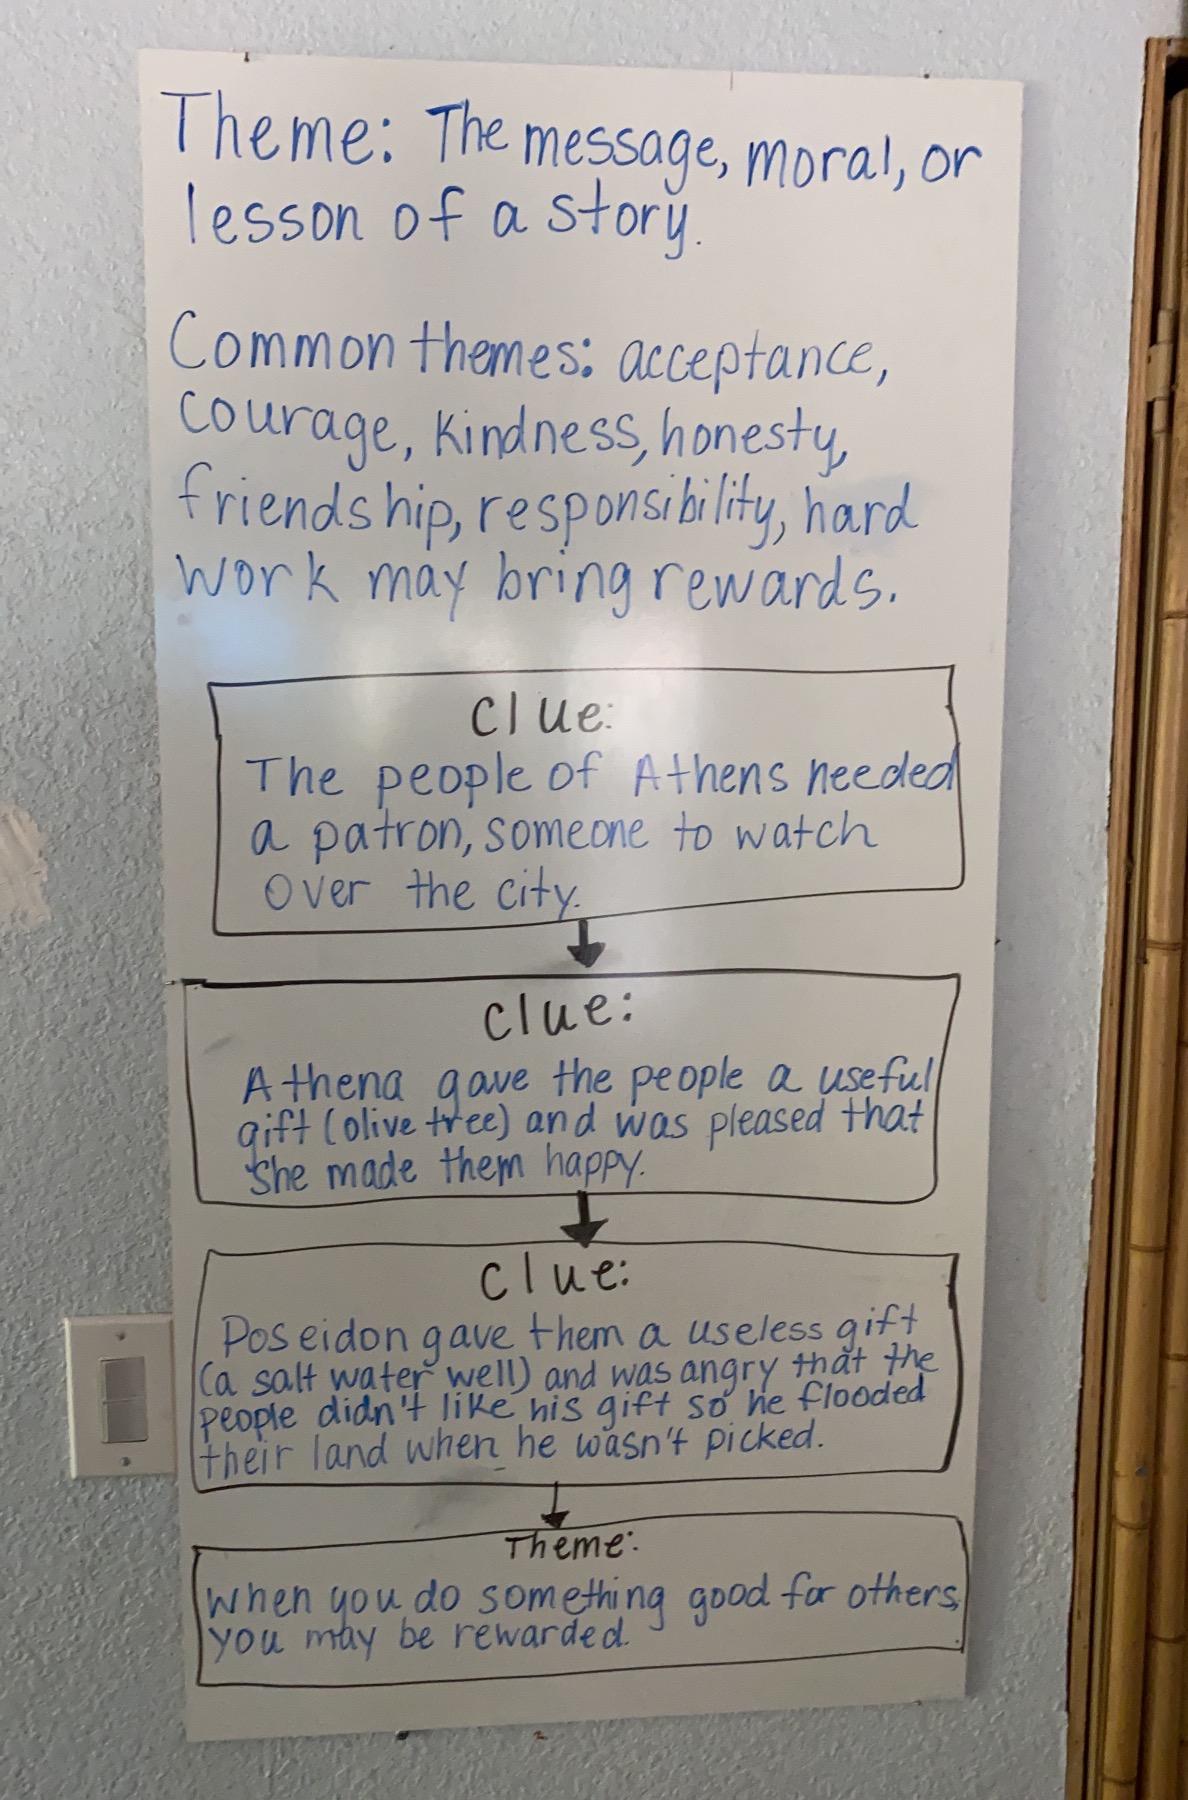 Theme: The message, moral, or
lesson of a story.
Common themes: acceptance,
courage, kindness, honesty,
friendship, responsibility, hard
work may bring rewards.
Clue:
The people of Athens needed
a patron, someone to watch
over the city.
Clue:
Athena gave the people a useful
gift (olive tree) and was pleased that
she made them happy.
Clue:
Poseidon gave them a useless gift
(a salt water well) and was angry that the
people didn't like his gift so he flooded
their land when he wasn't picked.
Theme:
When you do something good for others,
you may be rewarded.